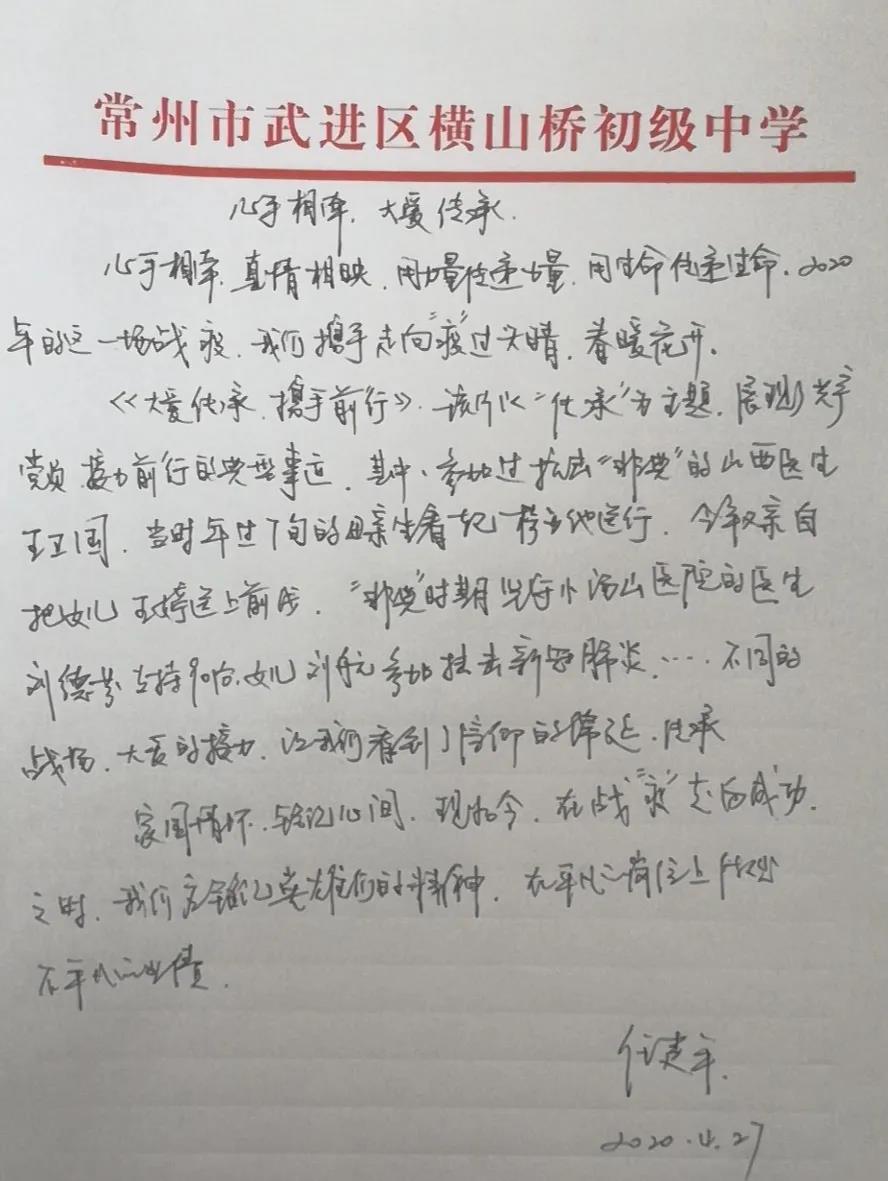 常州市武进区横山桥初级中学
心手相牵，大爱传承.
心手相牵，真情相映，用力量传递力量，用生命传递生命，2020
年的这一场战疫，我们携手走向“疫”过天晴，春暖花开。
《大爱传承，携手前行》，该片以“传承”为主题，展现了共产
党员接力前行的典型事迹，其中，参加过抗击“非典”的山西医生
王卫国，当时年过7旬的母亲坐着轮椅为他送行，今年又亲自
把女儿王婷送上前线，“非典”时期坚守小汤山医院的医生
刘德 支持90后女儿刘 参加抗击新冠肺炎，……不同的
战场，大爱的接力，让我们看到了信仰的绵延，传承
家国情怀，铭记心间，现如今，在战“疫”走向成功
之时，我们应铭记英雄们的精神，在平凡的岗位上作出
不平凡的业绩.
任建平
2020.4.27